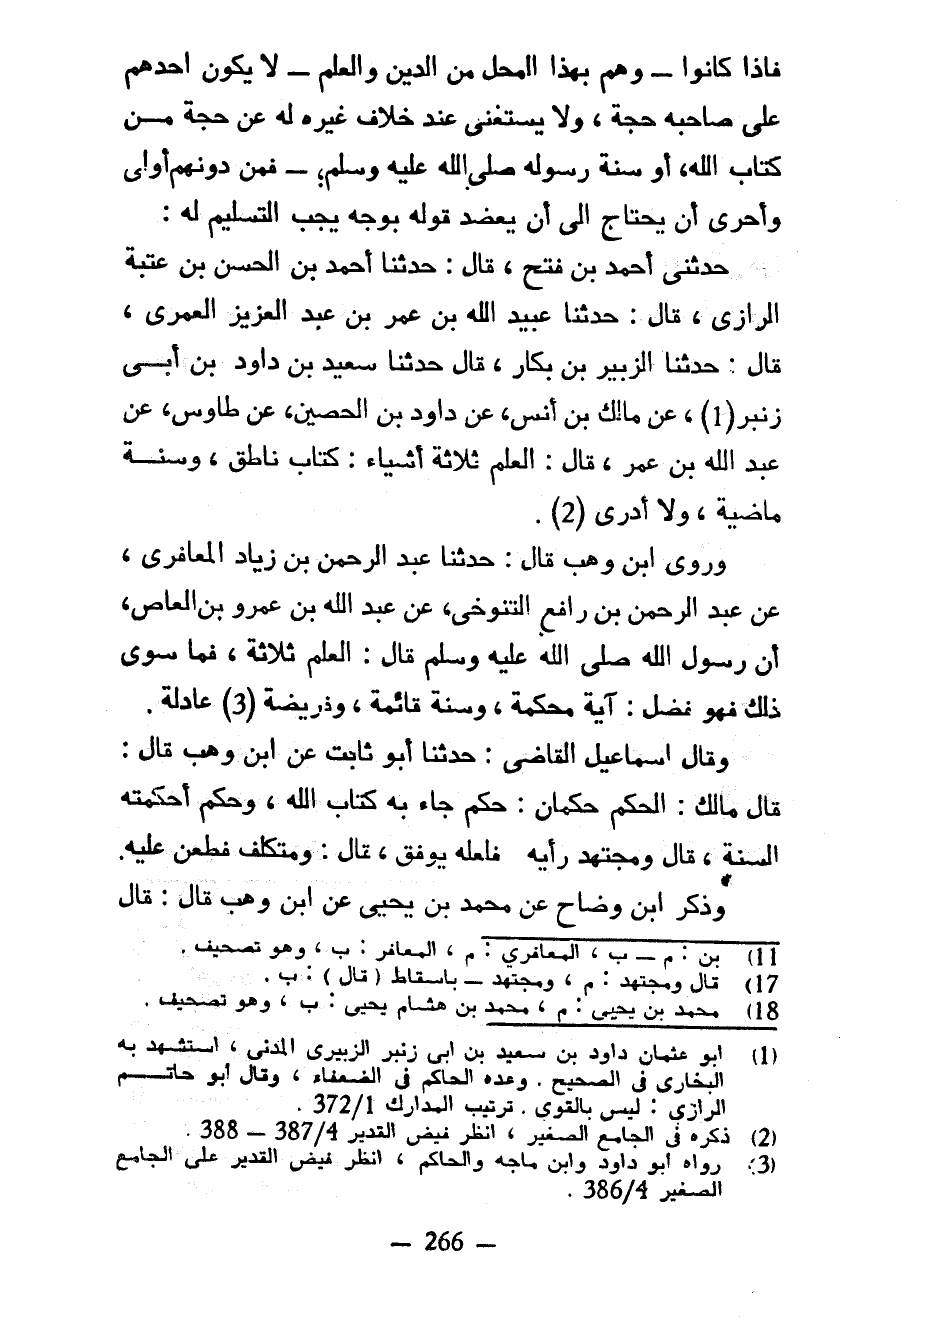 فاذا كانوا — وهم بهذا المحل من الدين والعلم — لا يكون احدهم
على صاحبه حجة ، ولا يستغنى عند خلاف غيره له عن حجة مـــن
كتاب الله، أو سنة رسوله صلى الله عليه وسلم، — فمن دونهم أولى
وأحرى أن يحتاج الى أن يعضد قوله بوجه يجب التسليم له :
حدثنى أحمد بن فتح ، قال : حدثنا أحمد بن الحسن بن عتبة
الرازى ، قال : حدثنا عبيد الله بن عمر بن عبد العزيز العمرى ،
قال : حدثنا الزبير بن بكار ، قال حدثنا سعيد بن داود بن أبـــى
زنبر(1) ، عن مالك بن أنس، عن داود بن الحصين، عن طاوس، عن
عبد الله بن عمر ، قال : العلم ثلاثة أشياء : كتاب ناطق ، وسنـــة
ماضية ، ولا أدرى (2) .
وروى ابن وهب قال : حدثنا عبد الرحمن بن زياد المعافرى ،
عن عبد الرحمن بن رافع التنوخى، عن عبد الله بن عمرو بن العاص،
أن رسول الله صلى الله عليه وسلم قال : العلم ثلاثة ، فما سوى
ذلك فهو فضل : آية محكمة ، وسنة قائمة ، وذريضة (3) عادلة .
وقال اسماعيل القاضى : حدثنا أبو ثابت عن ابن وهب قال :
قال مالك : الحكم حكمان : حكم جاء به كتاب الله ، وحكم أحكمته
السنة ، قال ومجتهد رأيه فلعله يوفق ، قال : ومتكلف فطعن عليه.
وذكر ابن وضاح عن محمد بن يحيى عن ابن وهب قال : قال
11) بن : م — ب ، المعافري : م ، المعافر : ب ، وهو تصحيف .
17) قال ومجتهد : م ، ومجتهد — باسقاط ( قال ) : ب .
18) محمد بن يحيى : م ، محمد بن هشام يحيى : ب ، وهو تصحيف .
(1) ابو عثمان داود بن سعيد بن ابى زنبر الزبيرى المدنى ، استشهد به
البخارى فى الصحيح . وعده الحاكم فى الضعفاء ، وقال أبو حاتـــم
الرازى : ليس بالقوى . ترتيب المدارك 372/1 .
(2) ذكره فى الجامع الصغير ، انظر فيض القدير 387/4 — 388 .
(3) رواه ابو داود وابن ماجه والحاكم ، انظر فيض القدير على الجامع
الصغير 386/4 .
— 266 —